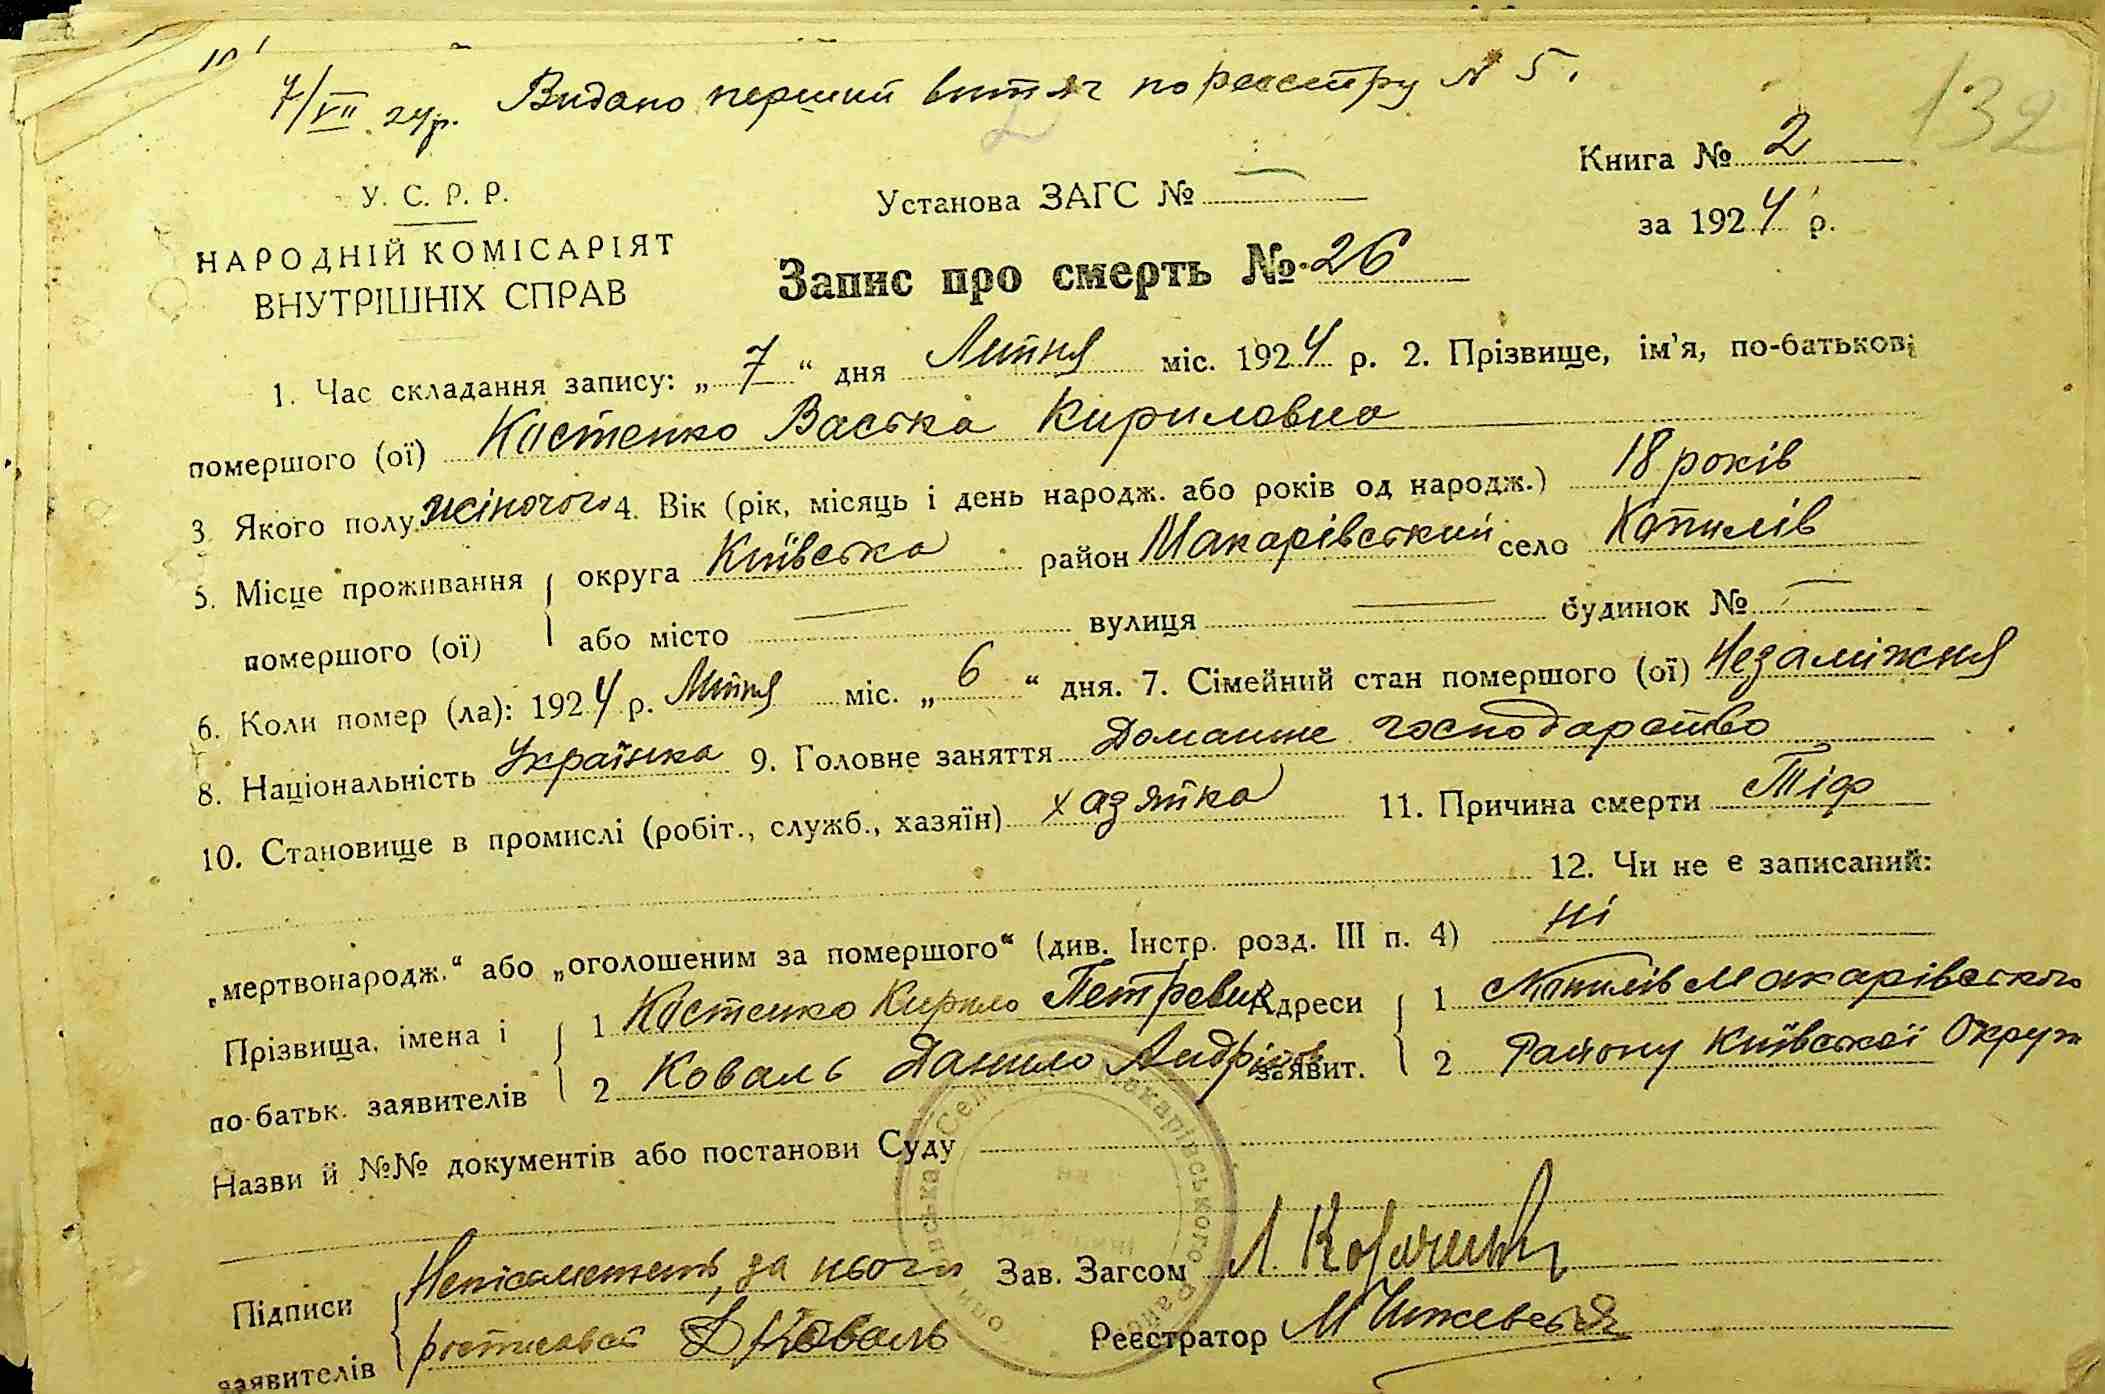 7/VII 24р. Видано перший витяг по реєстру № 5.
132
У. С. Р. Р.
НАРОДНІЙ КОМІСАРІЯТ
ВНУТРІШНІХ СПРАВ
Установа ЗАГС № —
Книга № 2
за 1924 р.
Запис про смерть № 26
1. Час складання запису: „7“ дня Липня міс. 1924 р. 2. Прізвище, ім'я, по-батькові
помершого (ої) Костенко Васька Кириловна
3. Якого полу жіночого 4. Вік (рік, місяць і день народж. або років од народж.) 18 років
5. Місце проживання округа Київська район Макарівський село Копилів
помершого (ої) або місто — вулиця — будинок № —
6. Коли помер (ла): 1924 р. Липня міс. „6“ дня. 7. Сімейний стан помершого (ої) Незаміжня
8. Національність Українка 9. Головне заняття Домашне господарство
10. Становище в промислі (робіт., служб., хазяїн) хазяйка 11. Причина смерти Тіф
12. Чи не є записаний:
„мертвонародж.“ або „оголошеним за помершого“ (див. Інстр. розд. III п. 4) ні
Прізвища, імена і 1 Костенко Кирило Петрович Адреси 1 Копилів Макарівського
по-батьк. заявителів 2 Коваль Данило Андріїв заявит. 2 Району Київської Округи
Назви й №№ документів або постанови Суду
Підписи Неписьменний, за нього Зав. Загсом
заявителів росписався Д Коваль Реєстратор
Макарівського Району